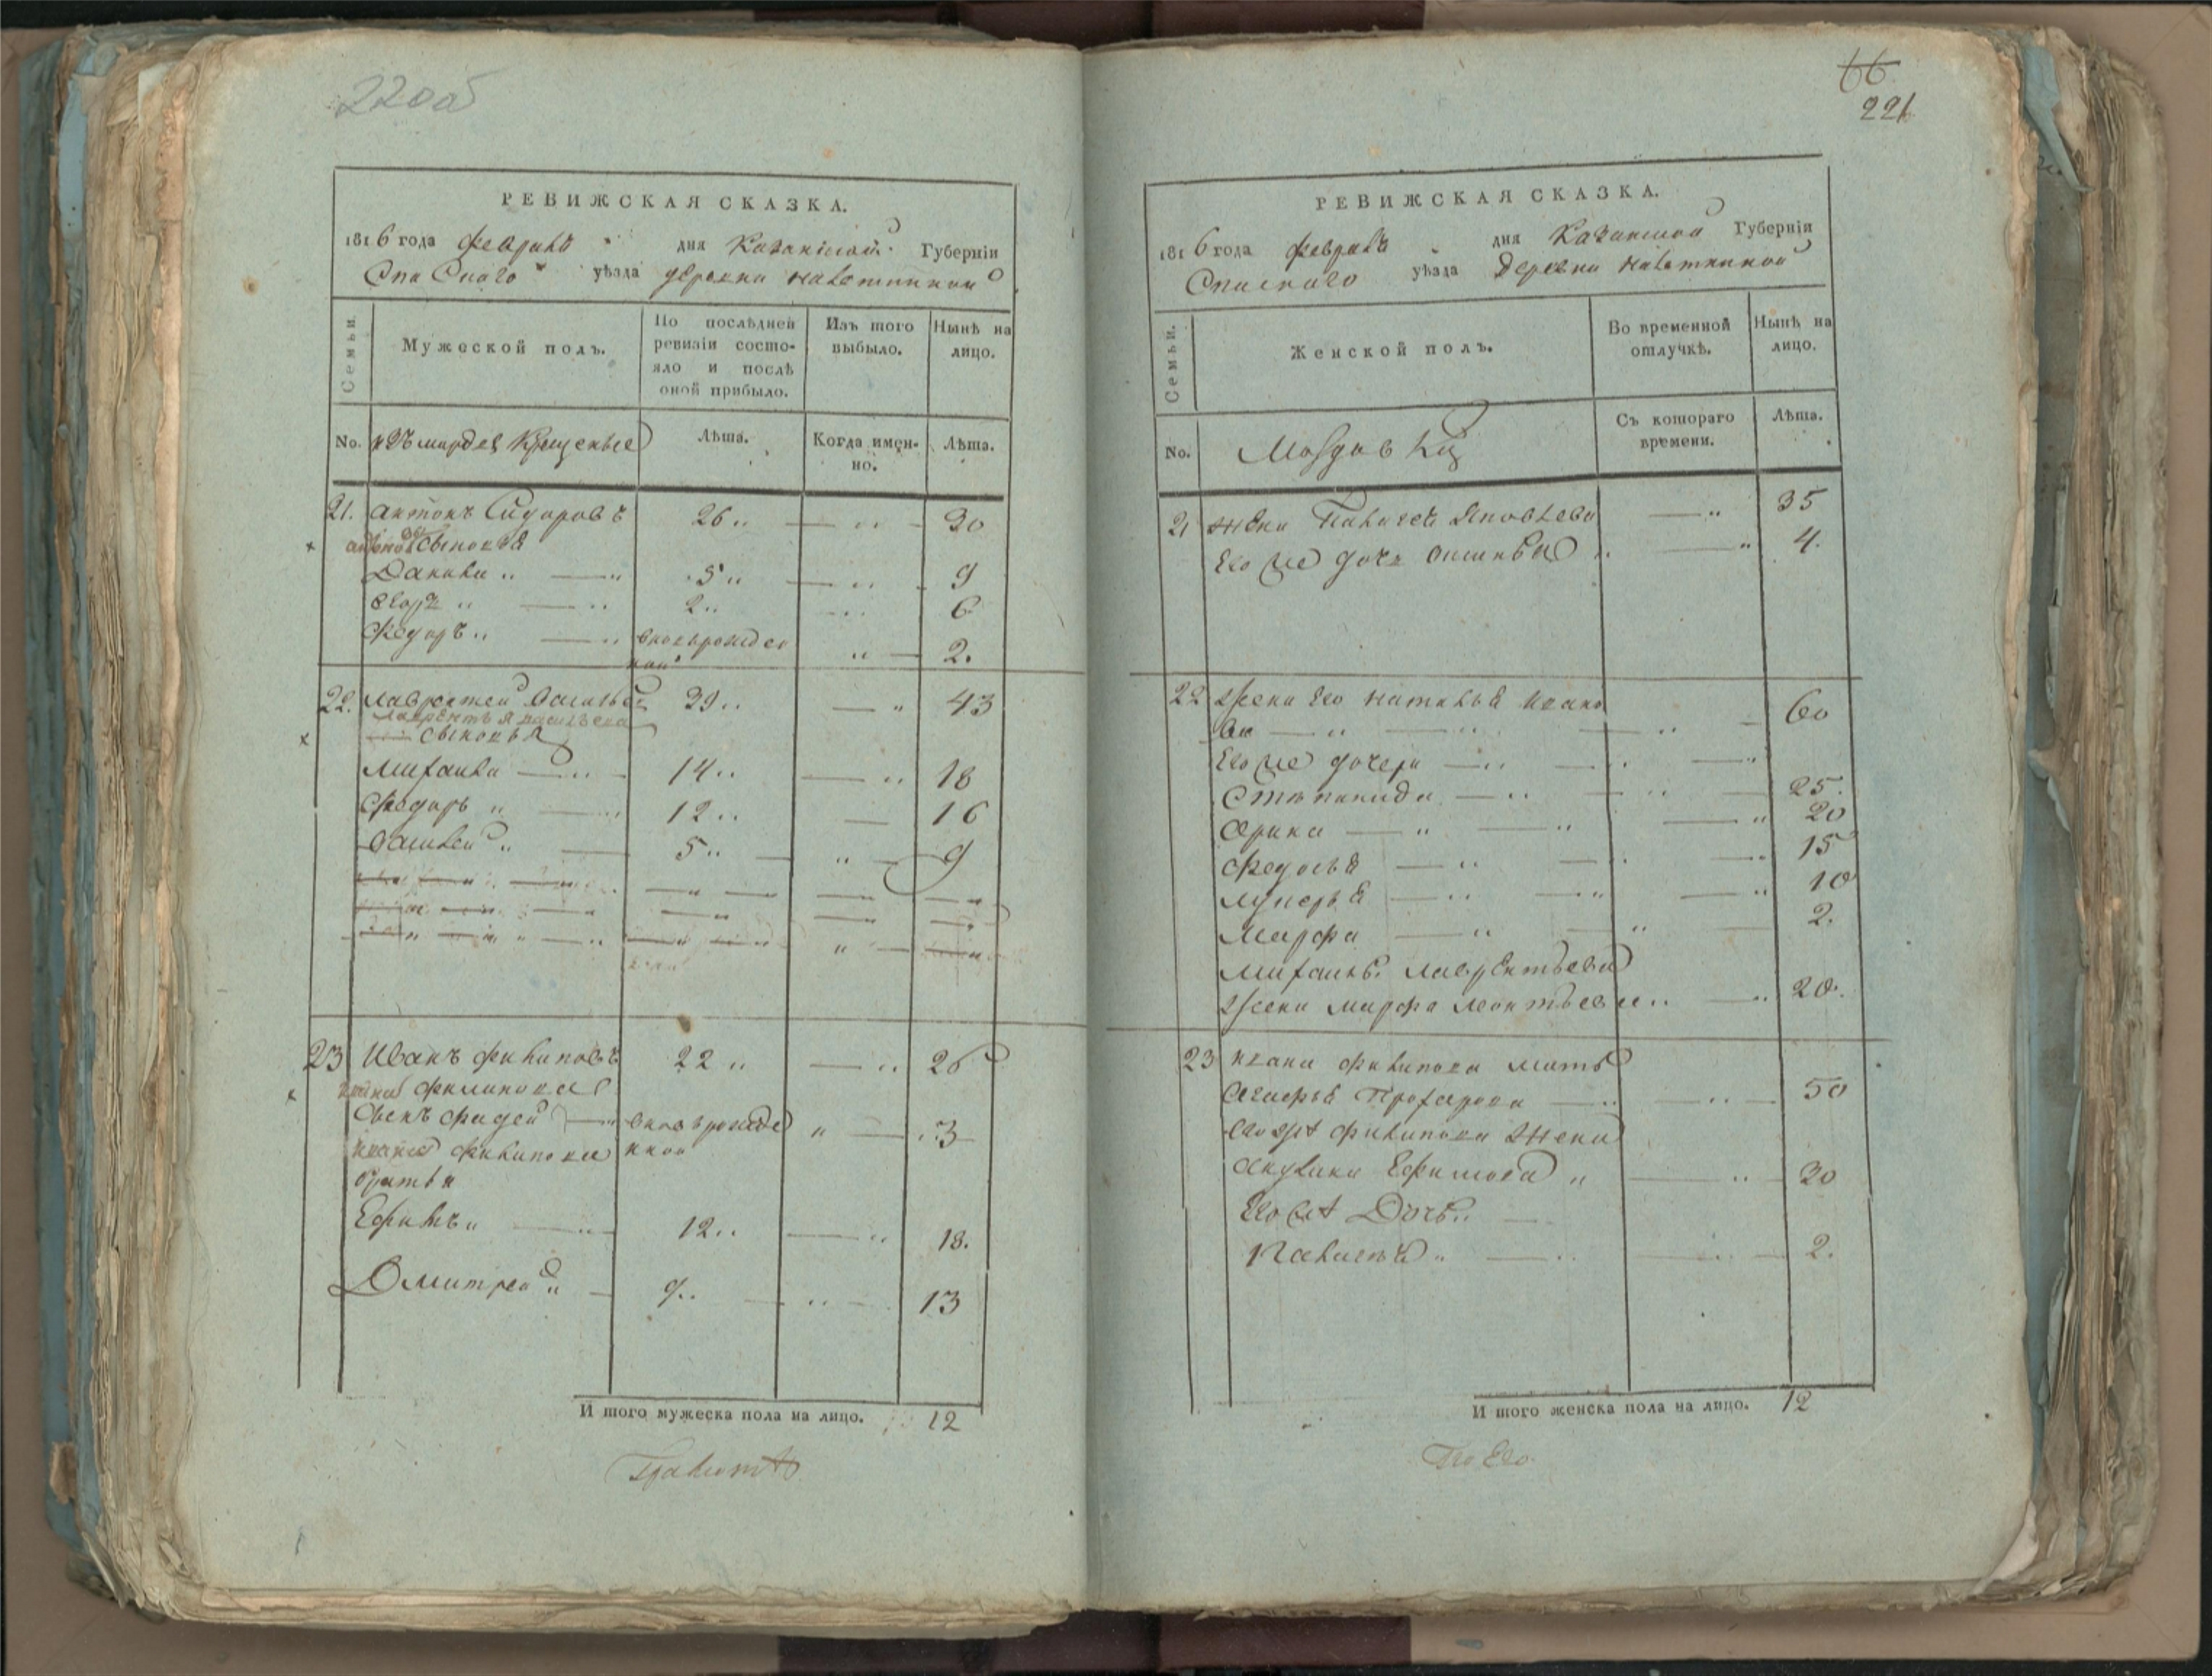 220об
РЕВИЖСКАЯ СКАЗКА.
1816 года февраля дня Казанской Губерніи
Спаскаго уѣзда деревни
Семьи.
Мужеской полъ.
По послѣдней ревизіи состо-
яло и послѣ оной прибыло.
Изъ того выбыло.
Ныне на лицо.
No. изъ мордвы крещеные
Лѣта.
Когда имен-
но.
Лѣта.
21. антонъ Сидоровъ 26 30
сыновья
Данила 5 9
егоръ 2 6
Федоръ новорожден
ной 2.
22. лаврентей василье 39 43
лаврентья васильева
сыновья
михаила 14 18
Федоръ 12 16
василей 5 9
23 Иванъ филиповъ 22 26
филипова
сынъ фадей новорожде
нной 3
филипова
братья
Ефимъ 12 18.
Дмитрей 9 13
И того мужеска пола на лицо. 12
66
221
РЕВИЖСКАЯ СКАЗКА.
1816 года февраля дня Казанской Губерніи
Спаскаго уѣзда деревни
Семьи.
Женской полъ.
Во временной отлучкѣ.
Нынѣ на лицо.
No.
Съ котораго времени.
Лѣта.
21 жена Яковлева 35
Его же дочь 4.
22 жена его наталья ивано
ва 60
Его же дочери
Степанида 25.
Арина 20
Федосья 15
лукерья 10
Марфа 2.
михаилы лаврентьева
жена марфа леонтьева 20.
23 ивана филипова мать
Агафья 50
филипова жена
Акулина Ефимова 30
Его же Дочь
2.
И того женска пола на лицо. 12